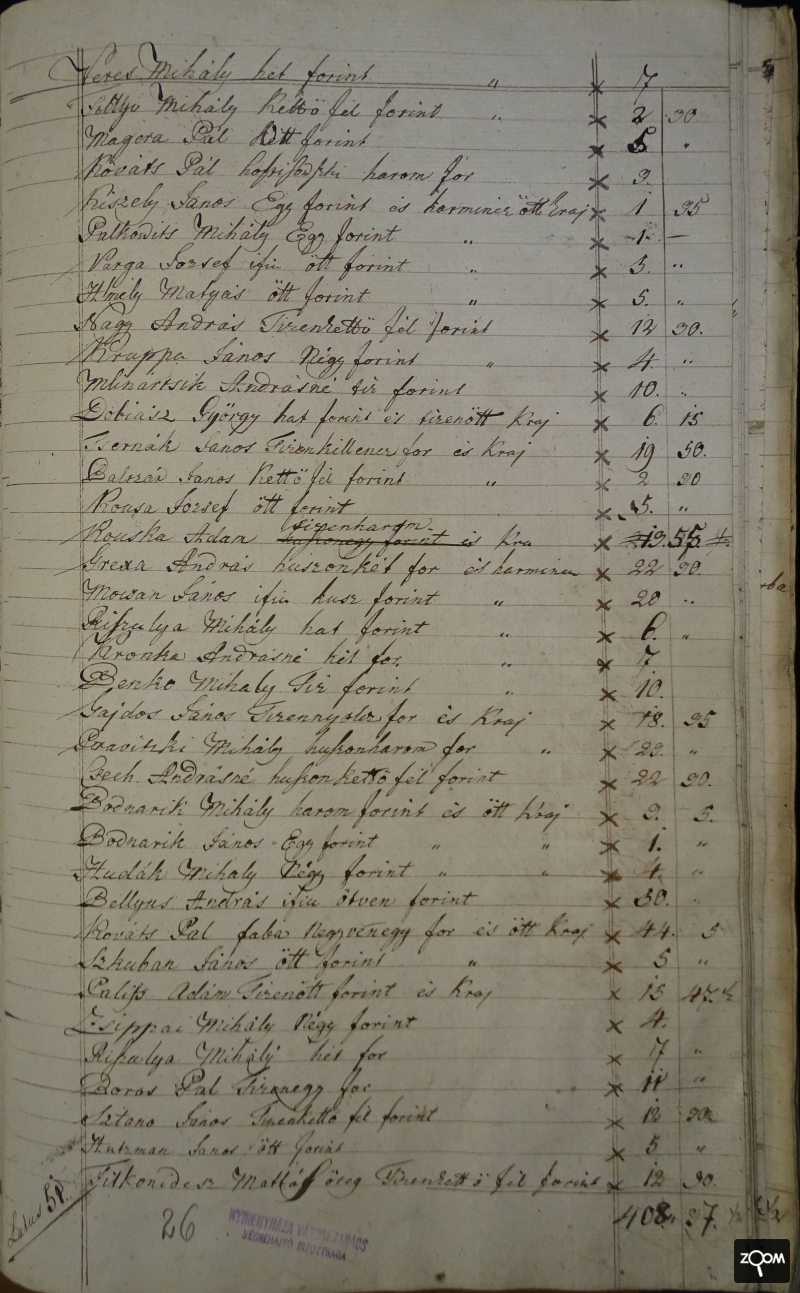 Veres Mihály hét forint " x 7
Mihály kettő fél forint " x 2 30
Magera Pál Ött forint x 5 "
Kováts Pál harom for x 3.
Kiszely János Egy forint és harmincz ött Kraj x 1 35
Palkovits Mihály Egy forint " x 1 –
Varga Josef ifiu ött forint " x 5. "
Hmely Matyás ött forint " x 5. "
Nagy András Tizenkettő fél forint x 12 30.
Kruppa János Négy forint " x 4. "
Mlinártsik Andrásné tiz forint x 10. "
Dobiász György hat forint és tizenött Kraj x 6. 15
Tsernák János Tizenkillencz for és Kraj x 19 50.
Baltzár János Kettő fél forint " x 2 30
Kousa Josef ött forint x 5. "
tizenharom
Kouska Adan huszonegy forint és Kra x 13. 55
Grexa András huszonkét for és harmincz x 22 30.
János ifiu husz forint " x 20 "
Riszulya Mihály hat forint " x 6. "
Kronka Andrásné hét for. " x 7
Benko Mihaly Tiz forint " x 10.
Gajdos János Tizennyolcz for és Kraj x 18. 35
Mihály huszonharom for " x 23. "
Csech Andrásné huszonkettő fél forint x 22 30.
Bodnarik Mihály harom forint és ött Kraj x 3. 5.
Bodnarik János Egy forint " " x 1. "
Hudák Mihaly Négy forint " " x 4. "
Bellyus András ifiu ötven forint x 50. "
Kováts Pal faba Negyvenegy for és ött Kraj x 44. 5
Szkuban János ött forint " x 5 "
Palisz Adám Tizenött forint és Kraj x 15 47.½
Zsippai Mihály Négy forint x 4.
Riszulya Mihály hét for x 7 "
Boros Pal Tizenegy for x 11 "
Sztano János Tizenkettő fél forint x 12 30.
Hutzman Janos ött forint x 5 "
Öreg Tizenkettő fél forint x 12 30.
Latus 51.
408 37. ½
26
NYÍREGYHÁZA VÁROSI TANÁCS
VÉGREHAJTÓ BIZOTTSÁGA
ZOOM